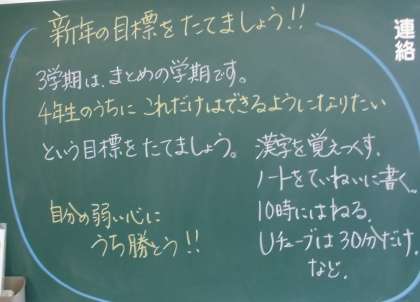 新年の目標をたてましょう!!
連絡
3学期は、まとめの学期です。
4年生のうちに これだけはできるようになりたい
という目標をたてましょう。
漢字を覚えつくす.
ノートをていねいに書く.
10時にはねる.
Uチューブは30分だけ.
など.
自分の弱い心に
うち勝とう!!